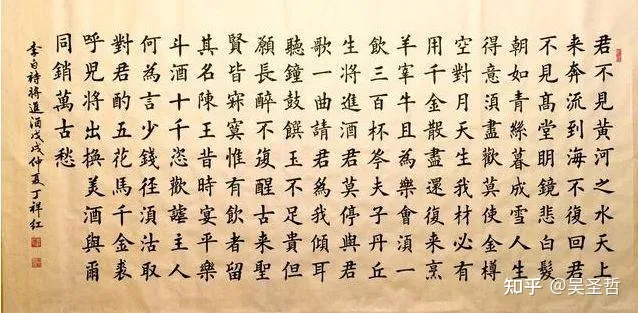 君不見黃河之水天上
来奔流到海不復回君
不見高堂明鏡悲白髮
朝如青絲暮成雪人生
得意須盡歡莫使金樽
空對月天生我材必有
用千金散盡還復来烹
羊宰牛且為樂會須一
飲三百杯岑夫子丹丘
生將進酒君莫停與君
歌一曲請君為我傾耳
聽鐘鼓饌玉不足貴但
願長醉不復醒古来聖
賢皆寂寞惟有飲者留
其名陳王昔時宴平樂
斗酒十千恣歡謔主人
何為言少錢徑須沽取
對君酌五花馬千金裘
呼兒將出換美酒與爾
同銷萬古愁
李白詩將進酒戊戌仲夏丁祥红
知乎 @吴圣哲